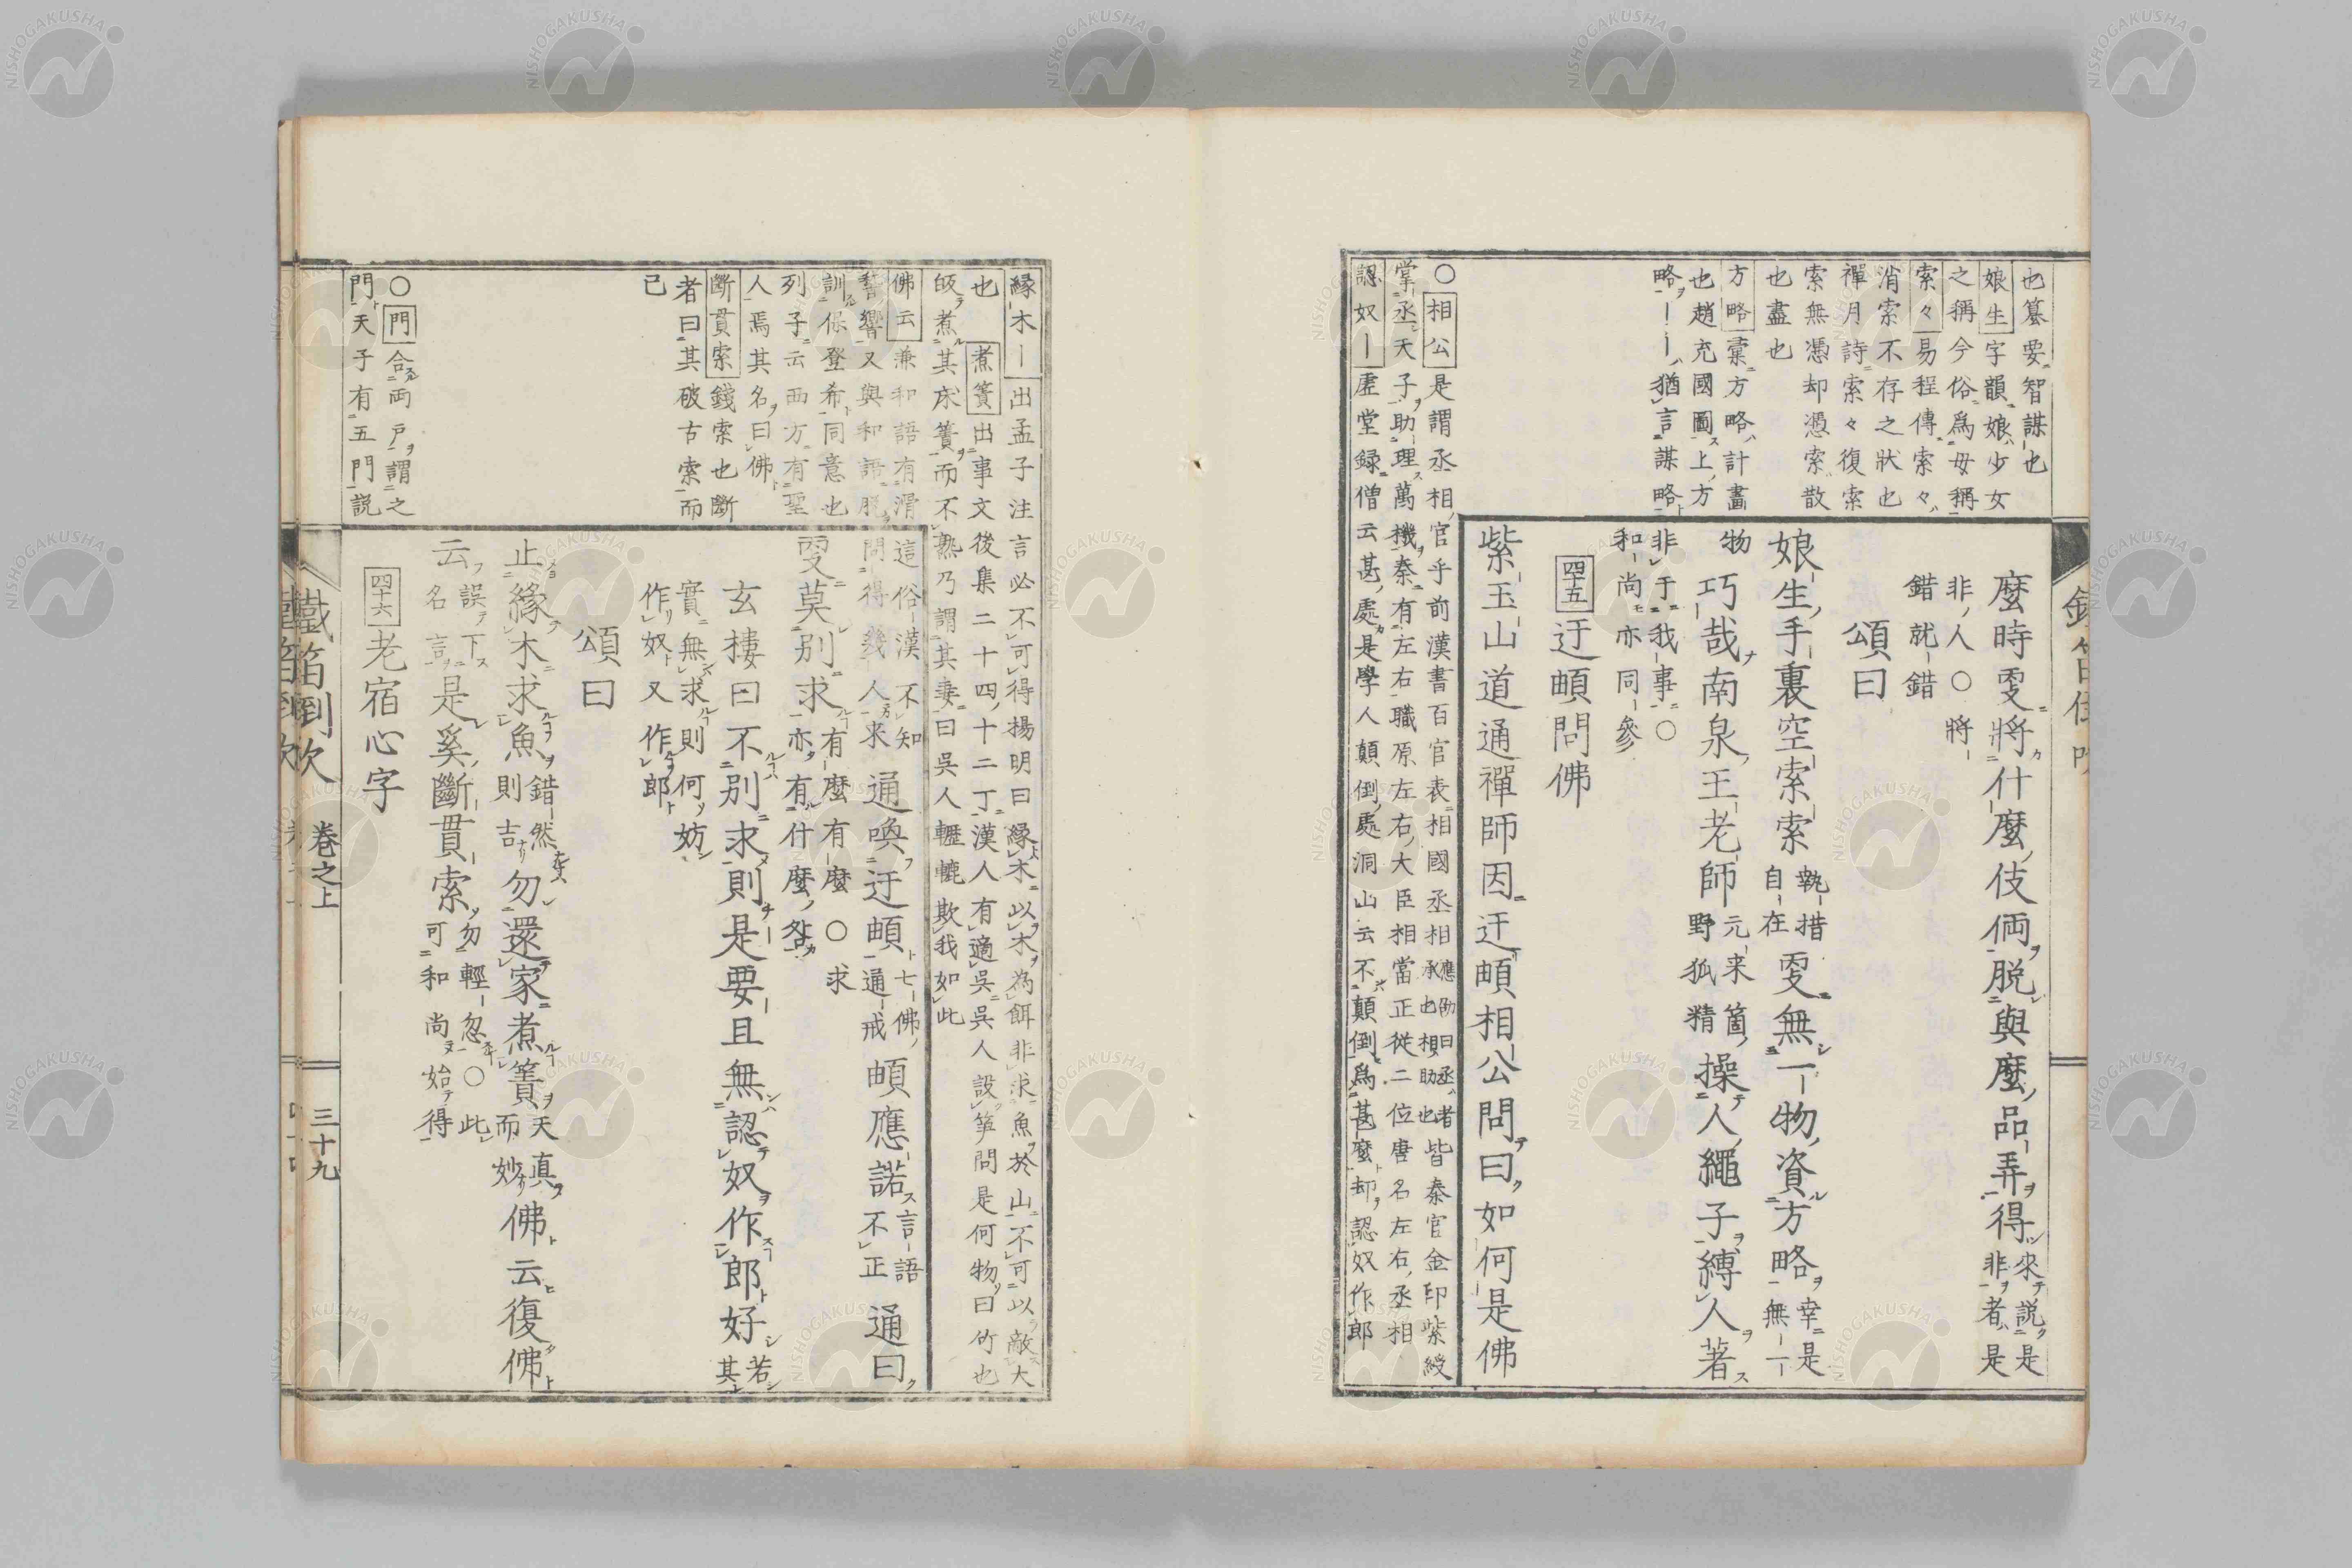 也蟇要智謀也
娘生字韻娘少女
之稱今俗為毋稱
索々易程傳索々
消索不存之狀也
禪月詩索々復索
索無憑却憑索散
也盡也
方略彙方略計畫
也趙充國圖上方
略——猶言謀略
麼時雯將什麼伎倆脱與麼品弄得
來説是
非者是
非人〇將
錯就錯
頌曰
娘生手裏空索索
執措
自在
雯無一物資方略
幸是
無一
物
巧哉南泉王老師
元来箇
野狐精
操人繩子縛人著
非于我事〇
和尚亦同參
四十五
迂頔問佛
紫玉山道通禪師因迂頔相公問曰如何是佛
〇相公是謂丞相官乎前漢書百官表相國丞相應劭曰丞者承也相助也皆秦官金印紫綬
掌丞天子助理萬機秦有左右職原左右大臣相當正從二位唐名左右丞相
認奴—虚堂録僧云甚處是學人顛倒處洞山云不顛倒為甚麼却認奴作郎
縁木—出孟子注言必不可得楊明曰縁木以木為餌非求魚於山不可以敵大
也煮簀出事文後集二十四十二丁漢人有適吳吳人設笋問是何物曰竹也
皈煮其床簀而不熟乃謂其妻曰吳人轣轆欺我如此
佛云兼和語有滑
聲響又與和語脱
訓保登希同意也
列子云西方有聖
人焉其名曰佛
斷貫索錢索也斷
者曰其破古索而
已
〇門合兩戸謂之
門天子有五門説
這俗漢不知
問得幾人来
通喚迂頔
七佛
通戒
頔應諾
言語
不正
通曰
雯莫別求
有麼有麼〇求
亦有什麼咎
玄樓曰不別求則是要且無認奴作郎好
若
其
實無求則何妨
作奴又作郎
頌曰
止緣木求魚
錯然
則吉
勿還家煮簀
天真
而妙
佛云復佛
云
誤下
名言
是奚斷貫索
勿輕忽〇此
可和尚始得
四十六
老宿心字
鐵笛倒吹
卷之上
三十九